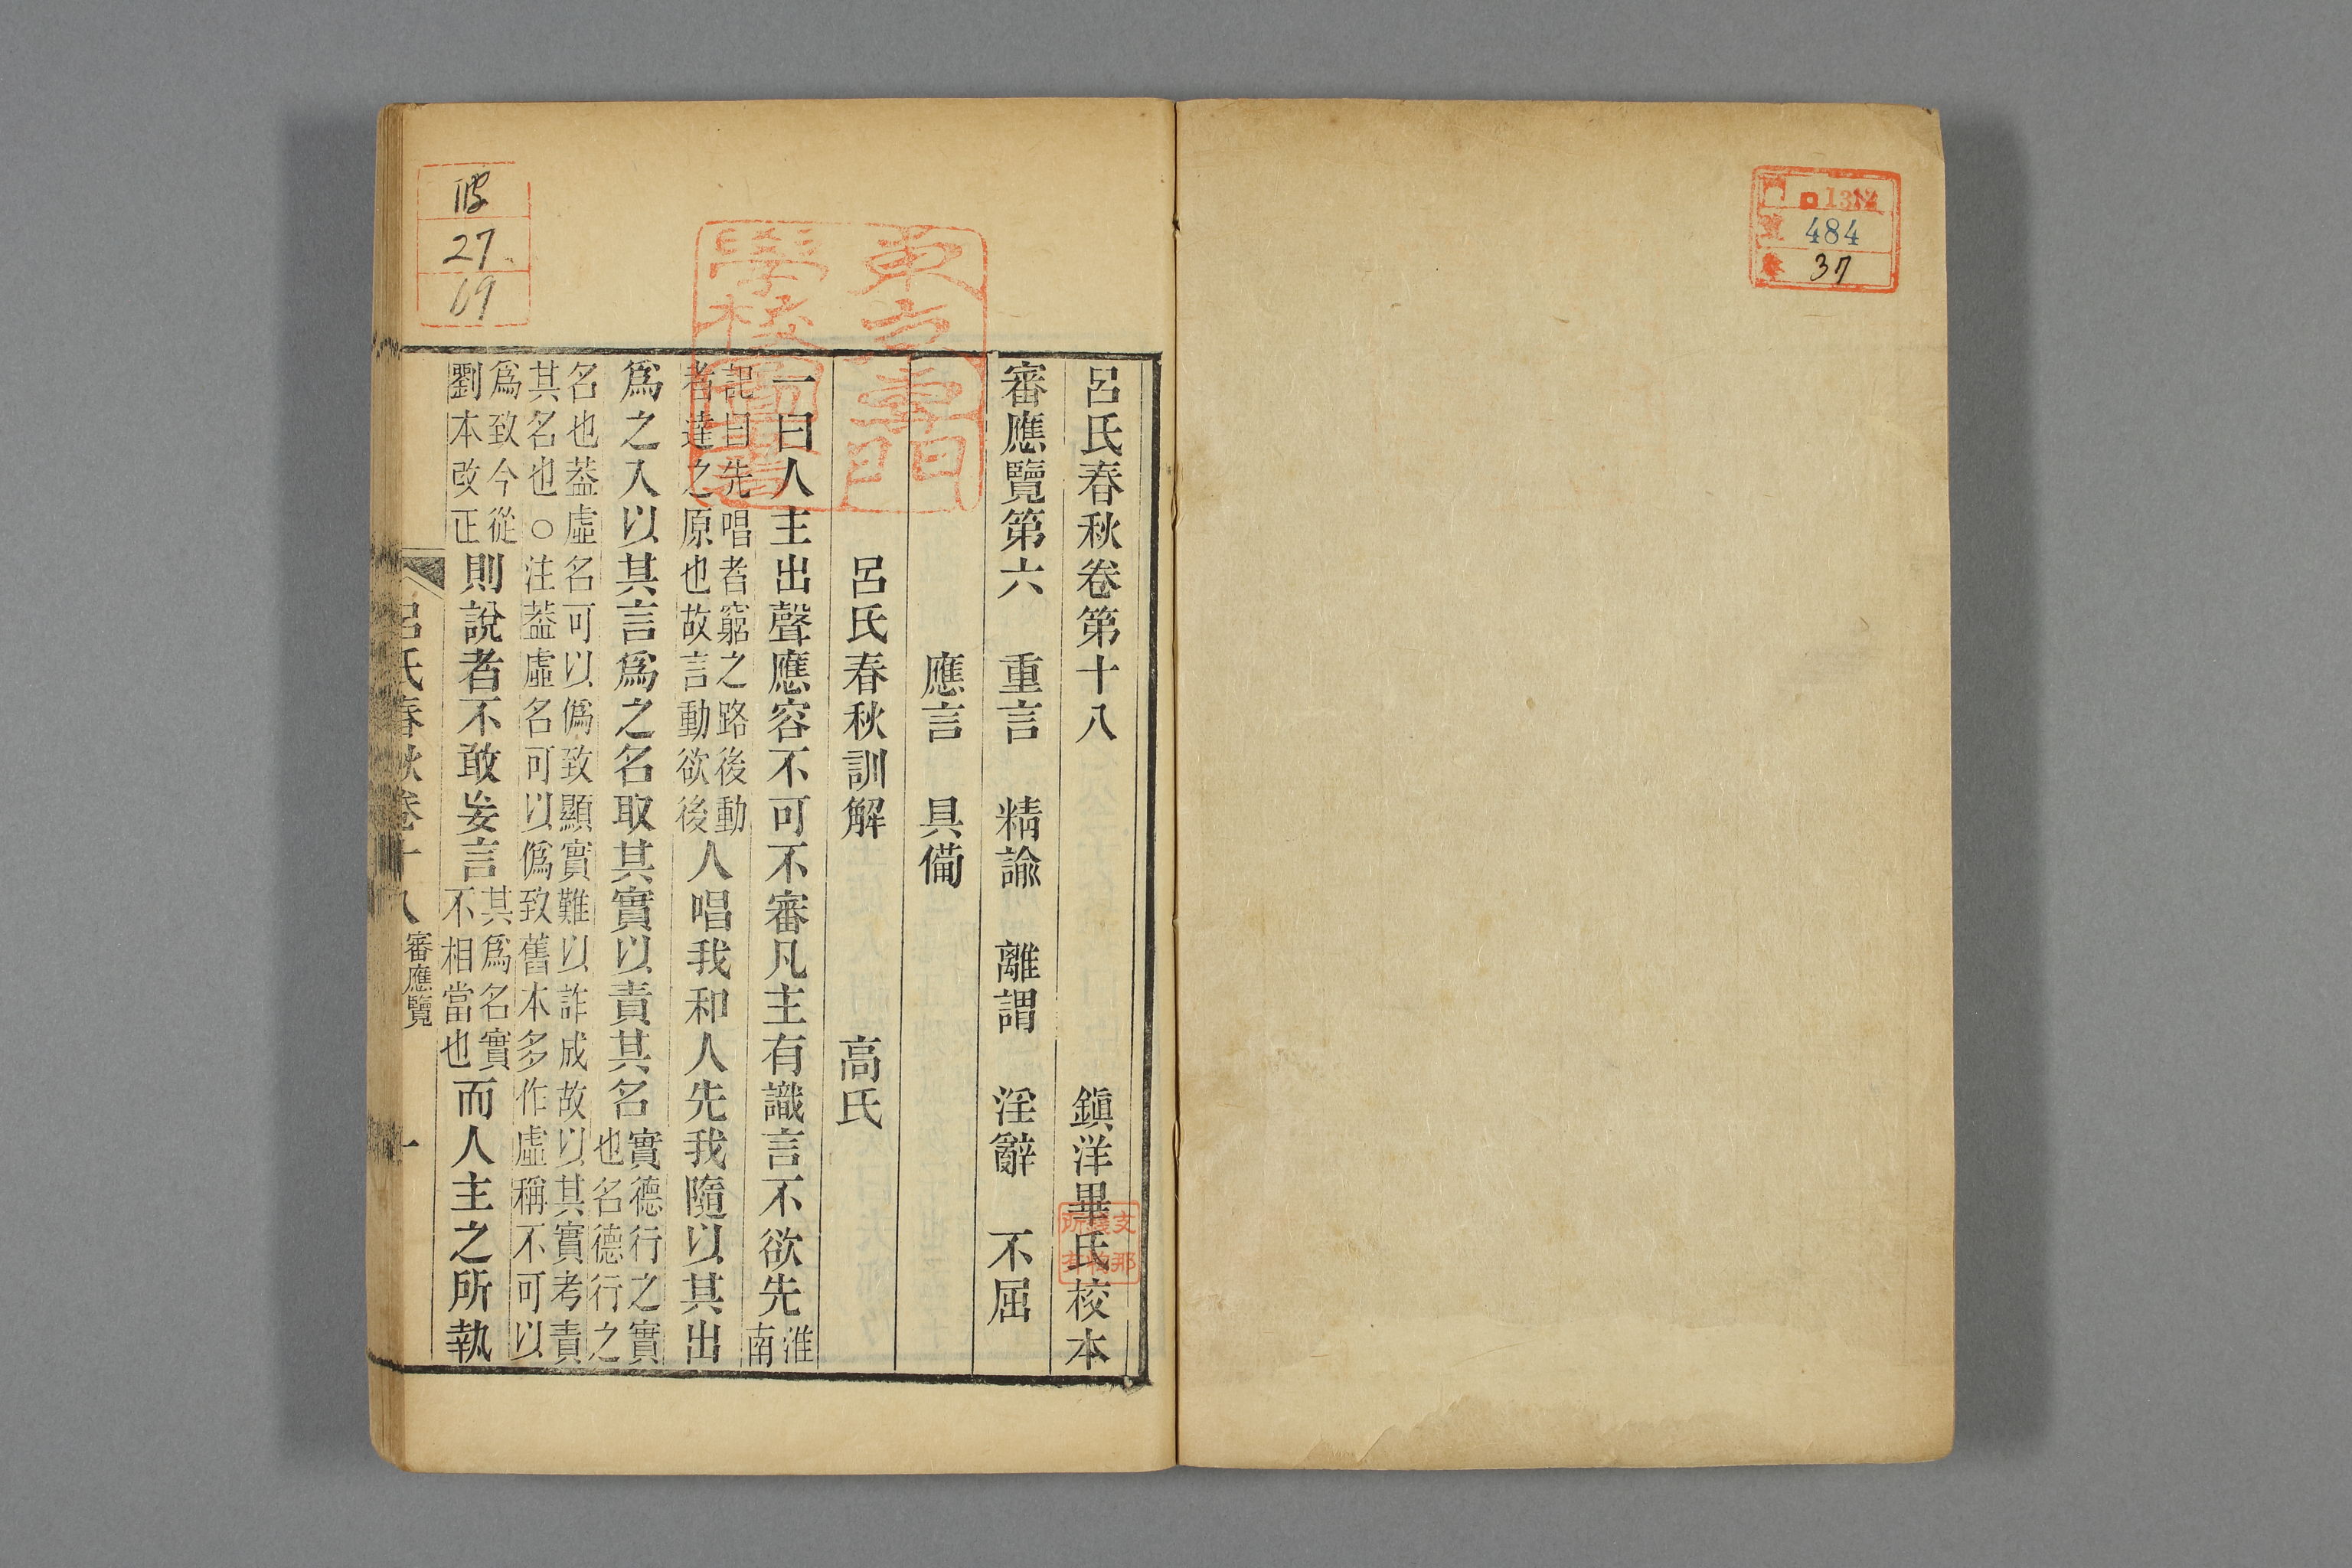 呂氏春秋卷第十八　鎮洋畢氏校本
審應覽第六　重言　精諭　離謂　淫辭　不屈
應言　具備
呂氏春秋訓解　高氏
一曰人主出聲應容不可不審凡主有識言不欲先淮南
記曰先唱者窮之路後動
者達之原也故言動欲後人唱我和人先我隨以其出
爲之入以其言爲之名取其實以責其名實德行之實
也名德行之
名也葢虛名可以僞致顯實難以詐成故以其實考責
其名也○注葢虛名可以僞致舊本多作虛稱不可以
爲致今從
劉本改正則說者不敢妄言其爲名實
不相當也而人主之所執
呂氏春秋卷十八　審應覽　一
東方專門
學校圖書
支那
錢恂
所有
27
69
484
37